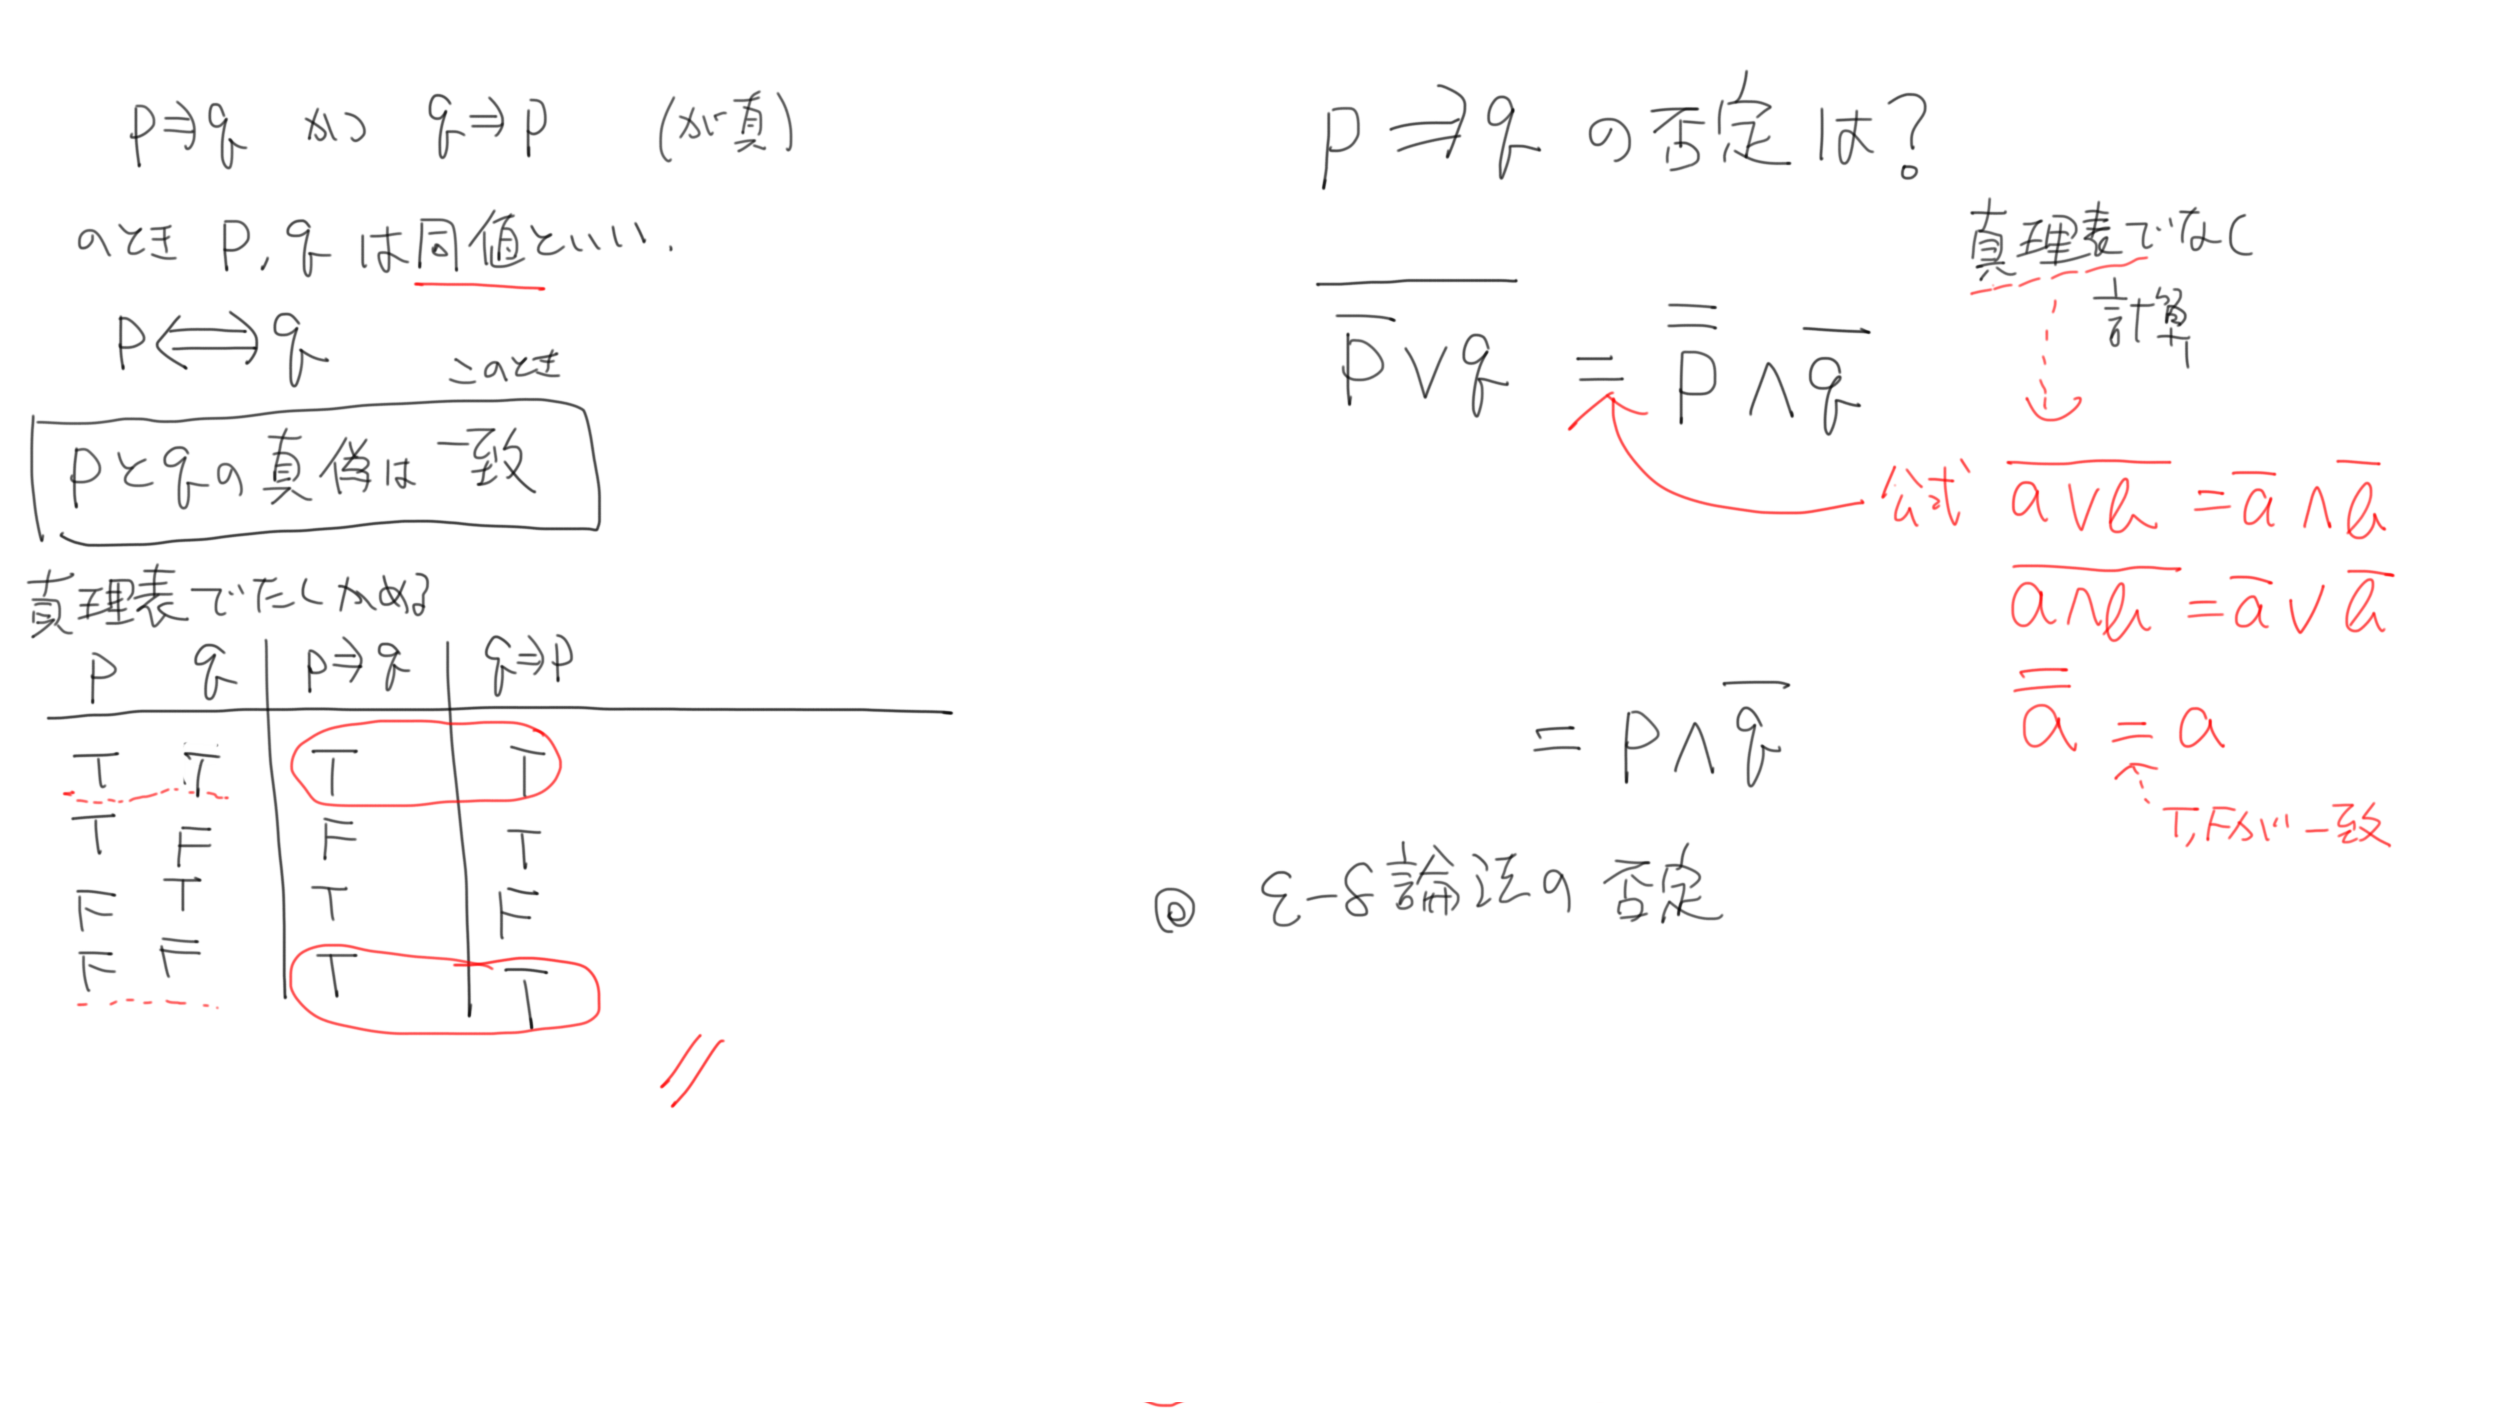 p⇒q かつ q⇒p (が真)
のとき p, q は同値といい、
p⟺q
このとき
pとqの真偽は一致
真理表でたしかめる
p q p⇒q q⇒p
T T T T
T F F T
F T T F
F F T T
p⇒qの否定は?
真理表でなく
計算
$\overline{\overline{p} \lor q} = \overline{\overline{p}} \land \overline{q}$
公式 $\overline{a \lor b} = \overline{a} \land \overline{b}$
$\overline{a \land b} = \overline{a} \lor \overline{b}$
$\overline{\overline{a}} = a$
= p∧$\overline{q}$
T, Fが一致
◎ ε-δ論法の否定